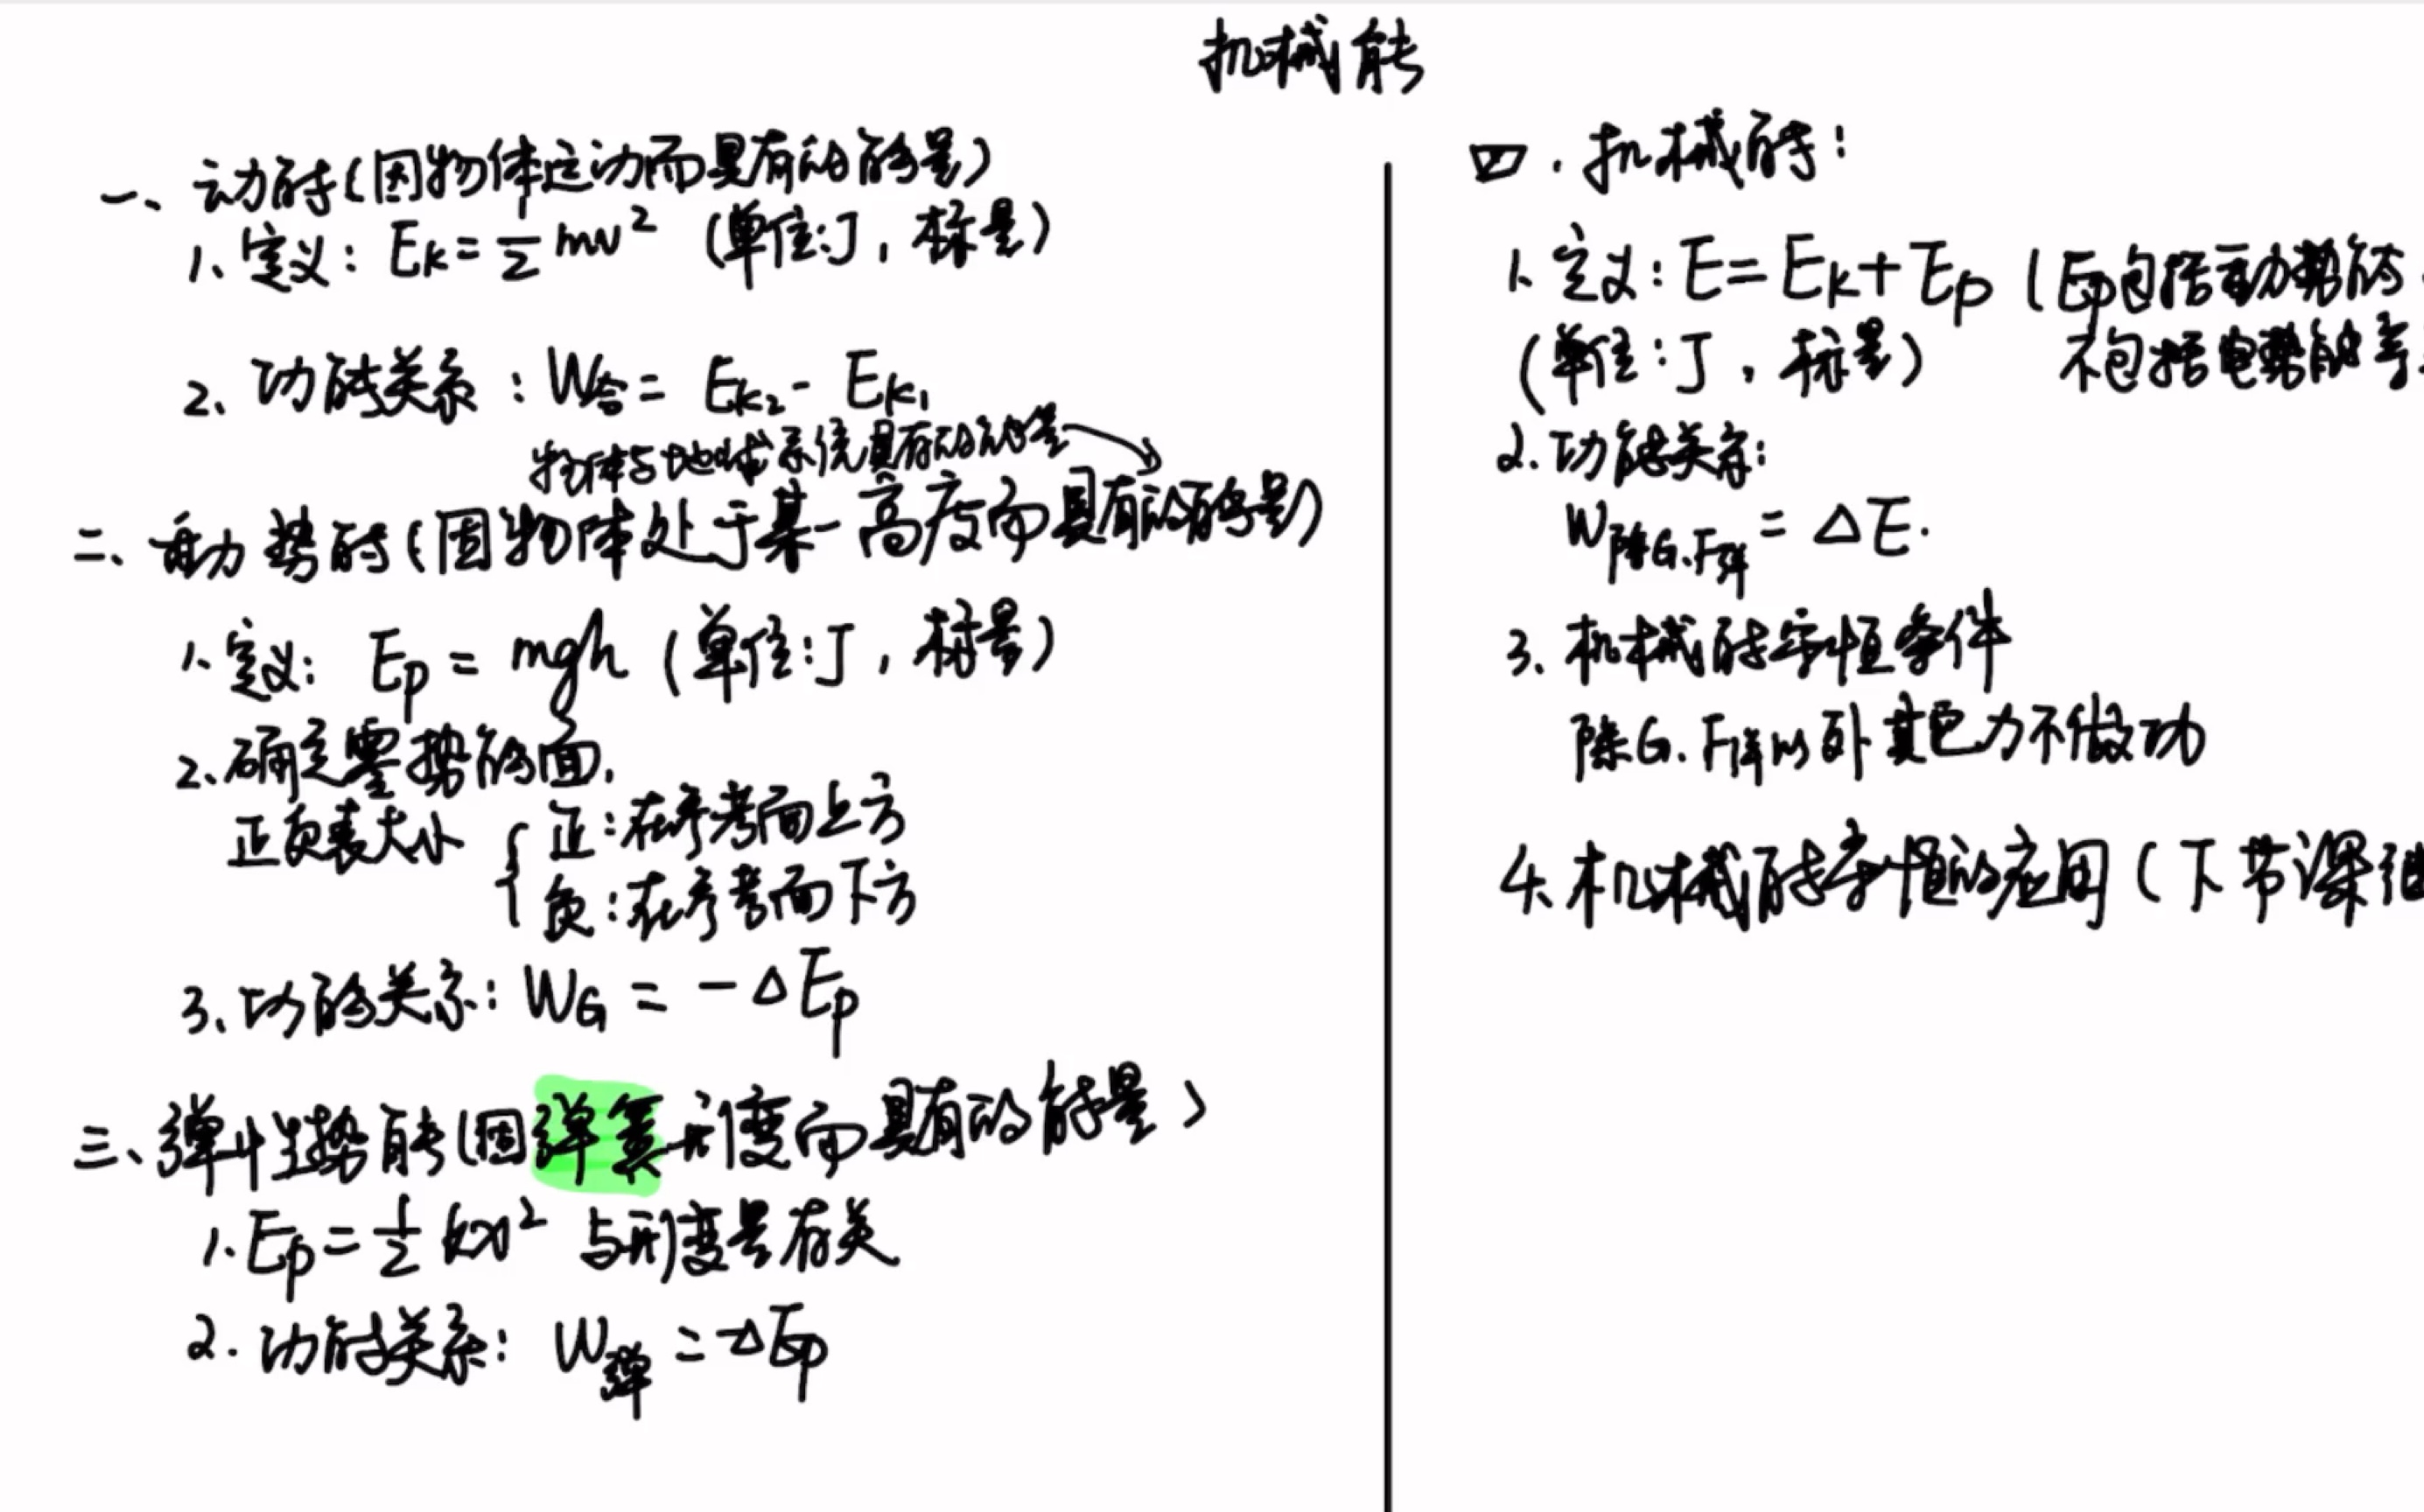 机械能
一、动能(因物体运动而具有的能量)
1、定义: Ek = 1/2 mv² (单位:J, 标量)
2、功能关系: W合 = Ek₂ - Ek₁
物体与地球系统具有的能量
二、重力势能(因物体处于某一高度而具有的能量)
1、定义: Ep = mgh (单位:J, 标量)
2、确定零势能面.
正负表大小 { 正:在参考面上方
负:在参考面下方
3、功能关系: WG = -ΔEp
三、弹性势能(因弹簧形变而具有的能量)
1. Ep = 1/2 kx² 与形变量有关
2. 功能关系: W弹 = -ΔEp
四. 机械能:
1、定义: E = Ek + Ep (Ep包括重力势能
(单位:J, 标量) 不包括电势能等
2. 功能关系:
W除G.F弹 = ΔE.
3. 机械能守恒条件
除G.F弹以外其它力不做功
4. 机械能守恒的应用(下节课